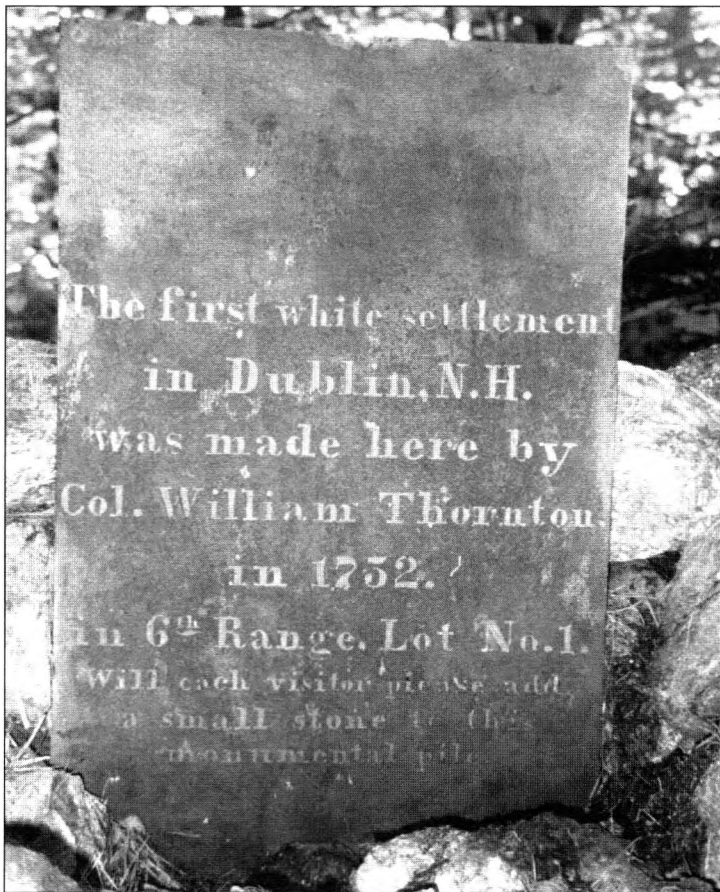 The first white settlement
in Dublin, N.H.
was made here by
Col. William Thornton.
in 1752.
in 6th Range. Lot No.1.
Will each visitor please add,
a small stone to this
monumental pile